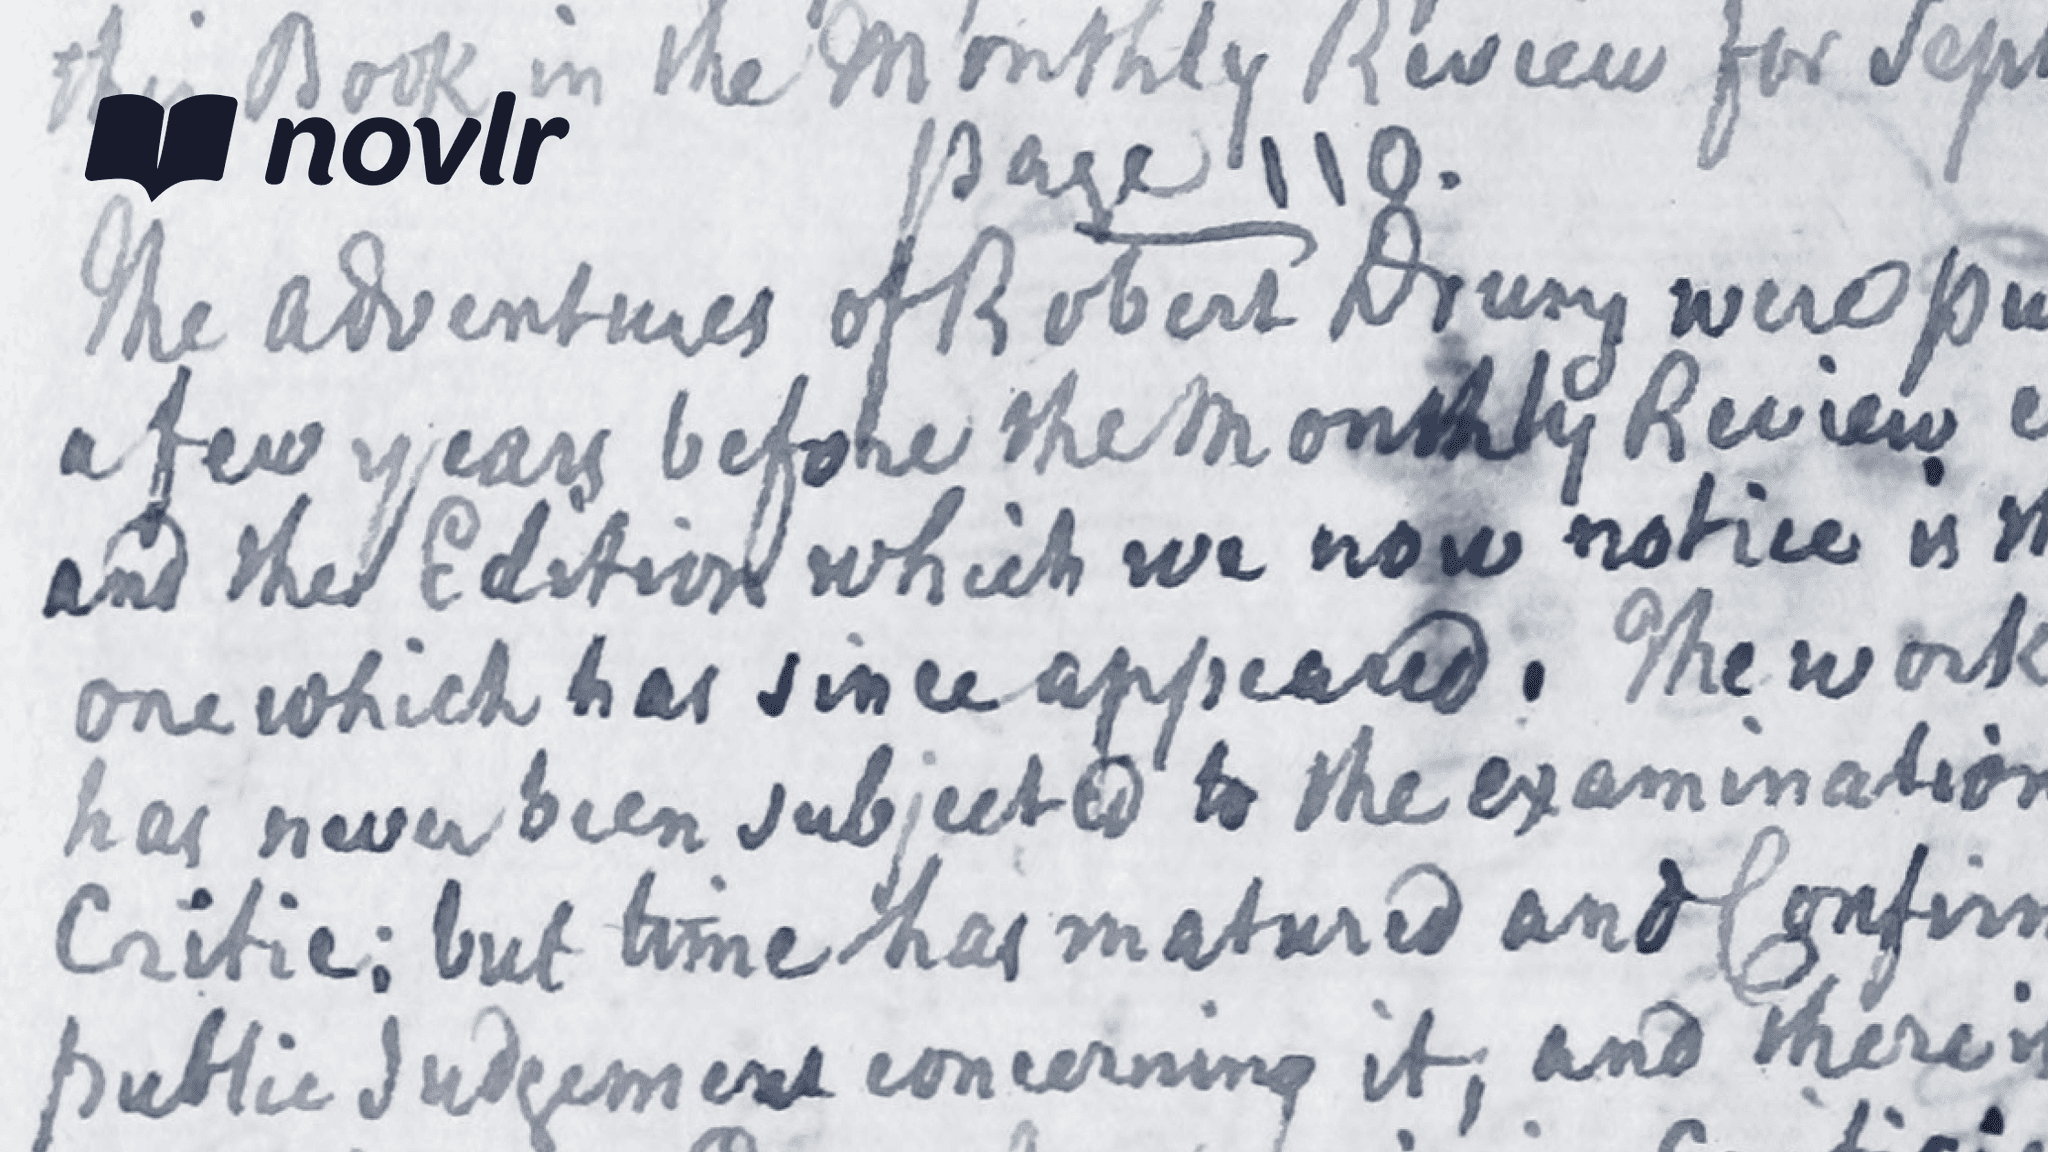 this Book in the Monthly Review for Sept
novlr
page 110.
The adventures of Robert Drury were pu
a few years before the Monthly Review, e
and the Edition which we now notice is th
one which has since appeared. The work
has never been subjected to the examination
Critic; but time has matured and Confirm
public Judgement concerning it, and there i